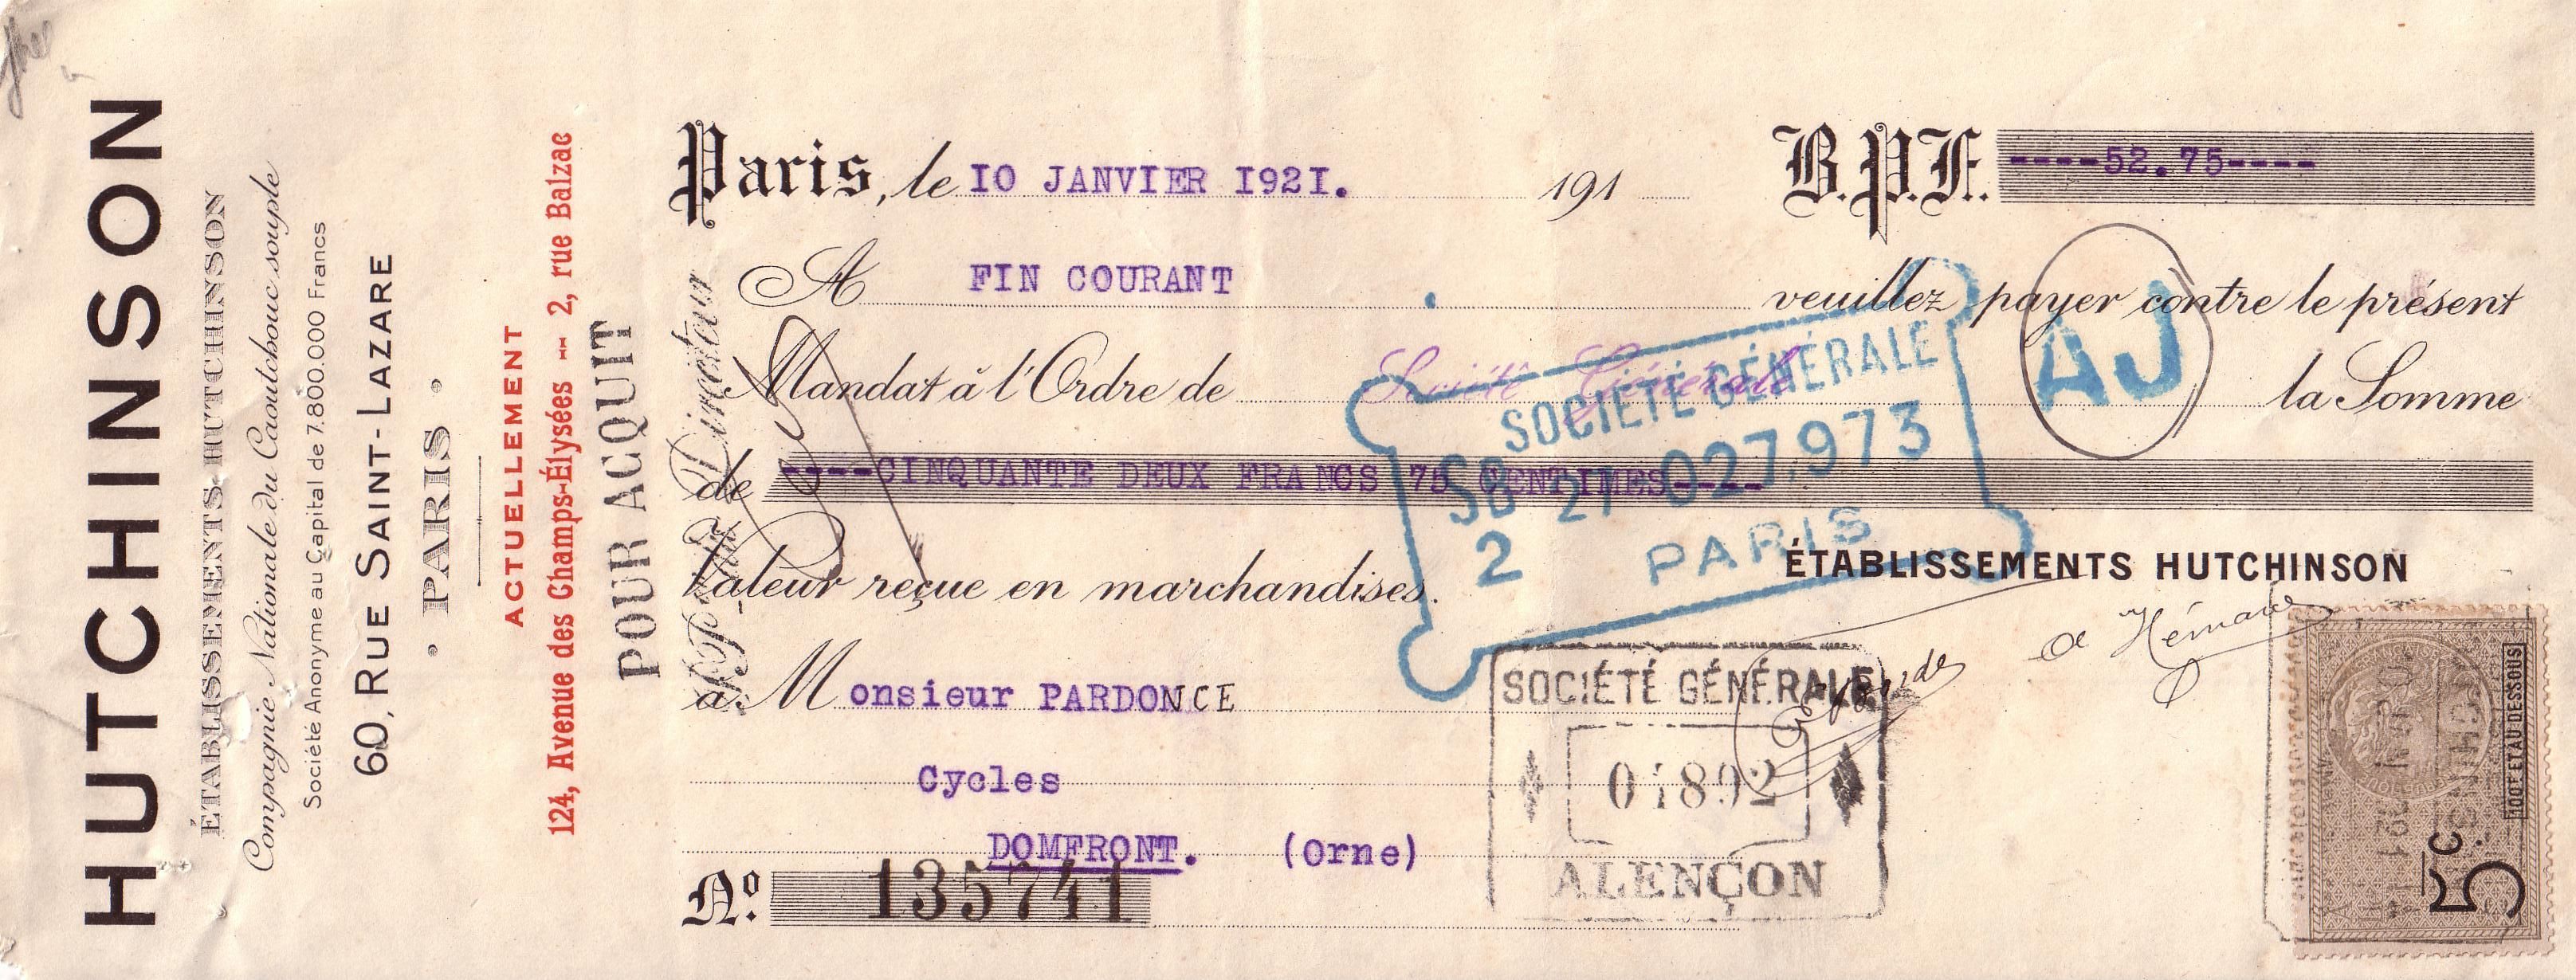 HUTCHINSON
ÉTABLISSEMENTS HUTCHINSON
Compagnie Nationale du Caoutchouc souple
Société Anonyme au Capital de 7.800.000 Francs
60, RUE SAINT-LAZARE
• PARIS •
ACTUELLEMENT
124, Avenue des Champs-Élysées -- 2, rue Balzac
POUR ACQUIT
Directeur
Paris, le 10 JANVIER 1921. 191
B.P.F. ----52.75----
A FIN COURANT veuillez payer contre le présent
Mandat à l'Ordre de Société Générale la Somme
AJ
de ----CINQUANTE DEUX FRANCS 75 CENTIMES----
SOCIÉTÉ GÉNÉRALE
SG 21 027,973
2 PARIS
Valeur reçue en marchandises.
ÉTABLISSEMENTS HUTCHINSON
à Monsieur PARDONCE
Cycles
DOMFRONT. (Orne)
Nº 135741
SOCIÉTÉ GÉNÉRALE
04892
ALENÇON
100F ET AU DESSOUS
5c